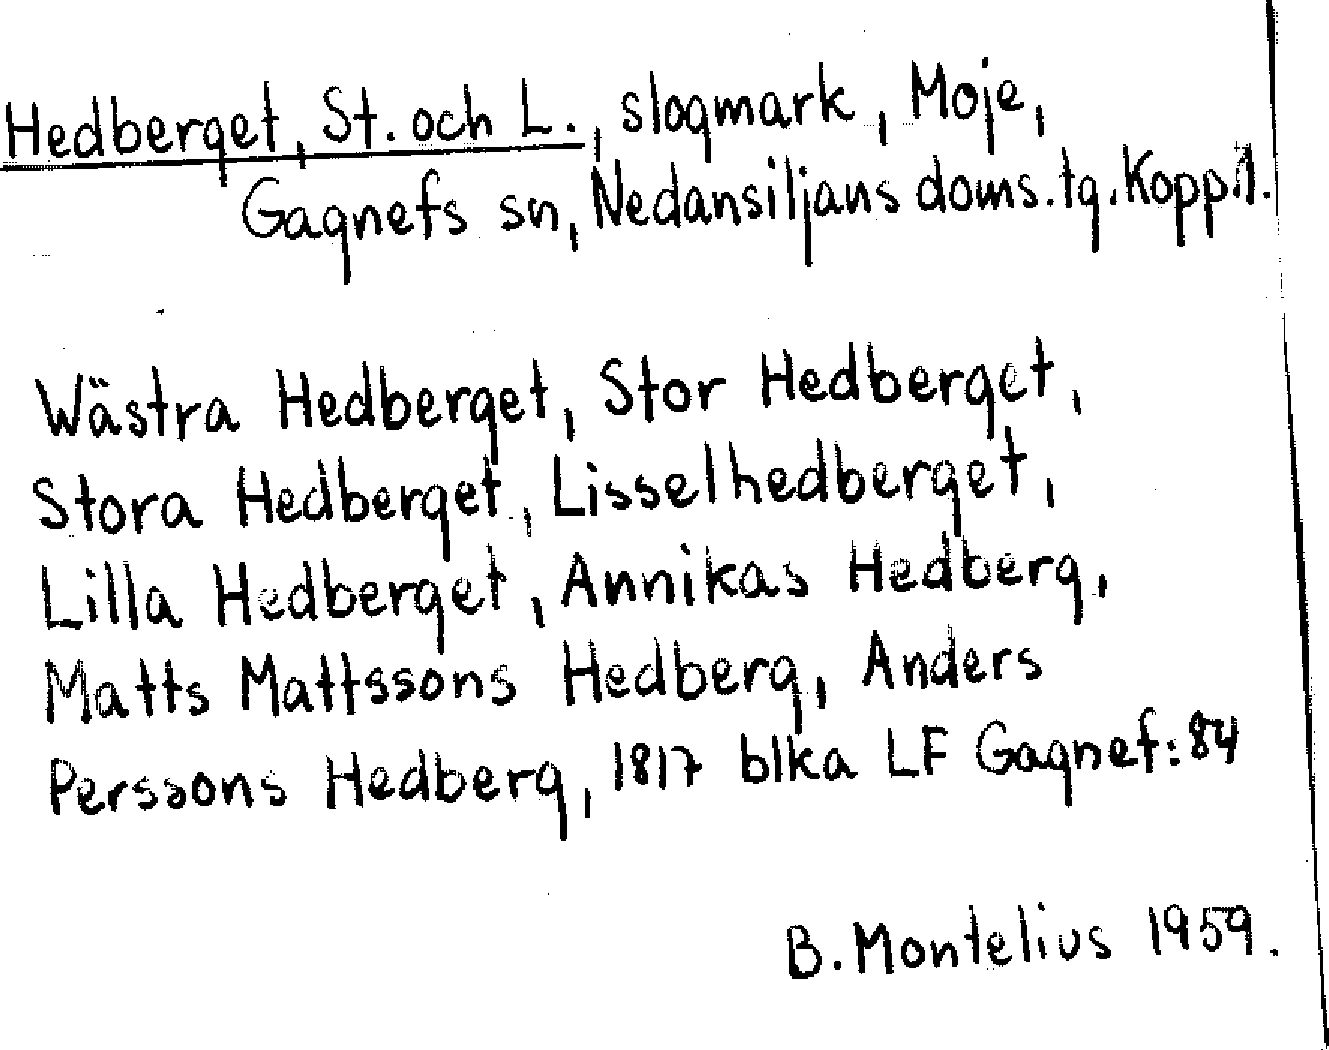 Hedberget, St. och L., slogmark, Moje,
Gagnefs sn, Nedansiljans doms. tg. Kopp. l.
Wästra Hedberget, Stor Hedberget,
Stora Hedberget, Lisselhedberget,
Lilla Hedberget, Annikas Hedberg,
Matts Mattssons Hedberg, Anders
Perssons Hedberg, 1817 blka LF Gagnef: 84
B. Montelius 1959.